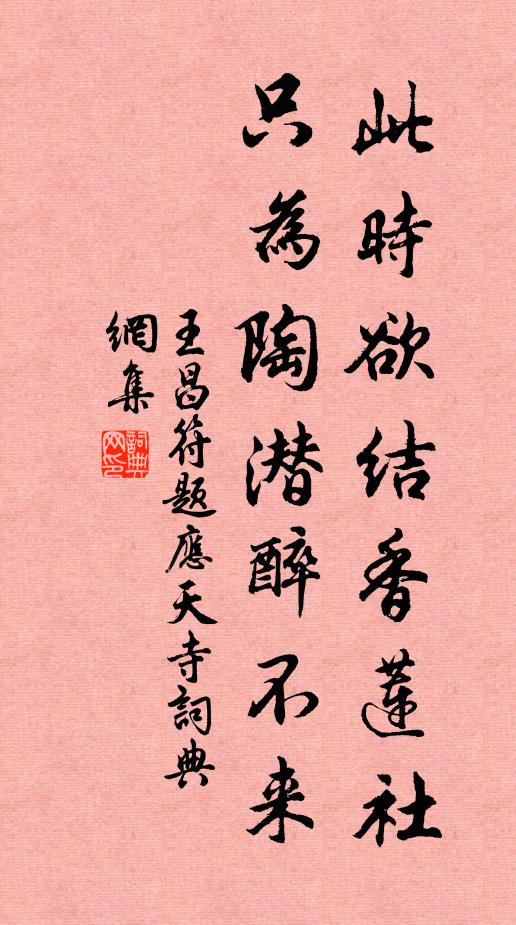 此時欲结香蓮社
只為陶潜醉不来
王昌符题應天寺詞典
網集
詞典網印